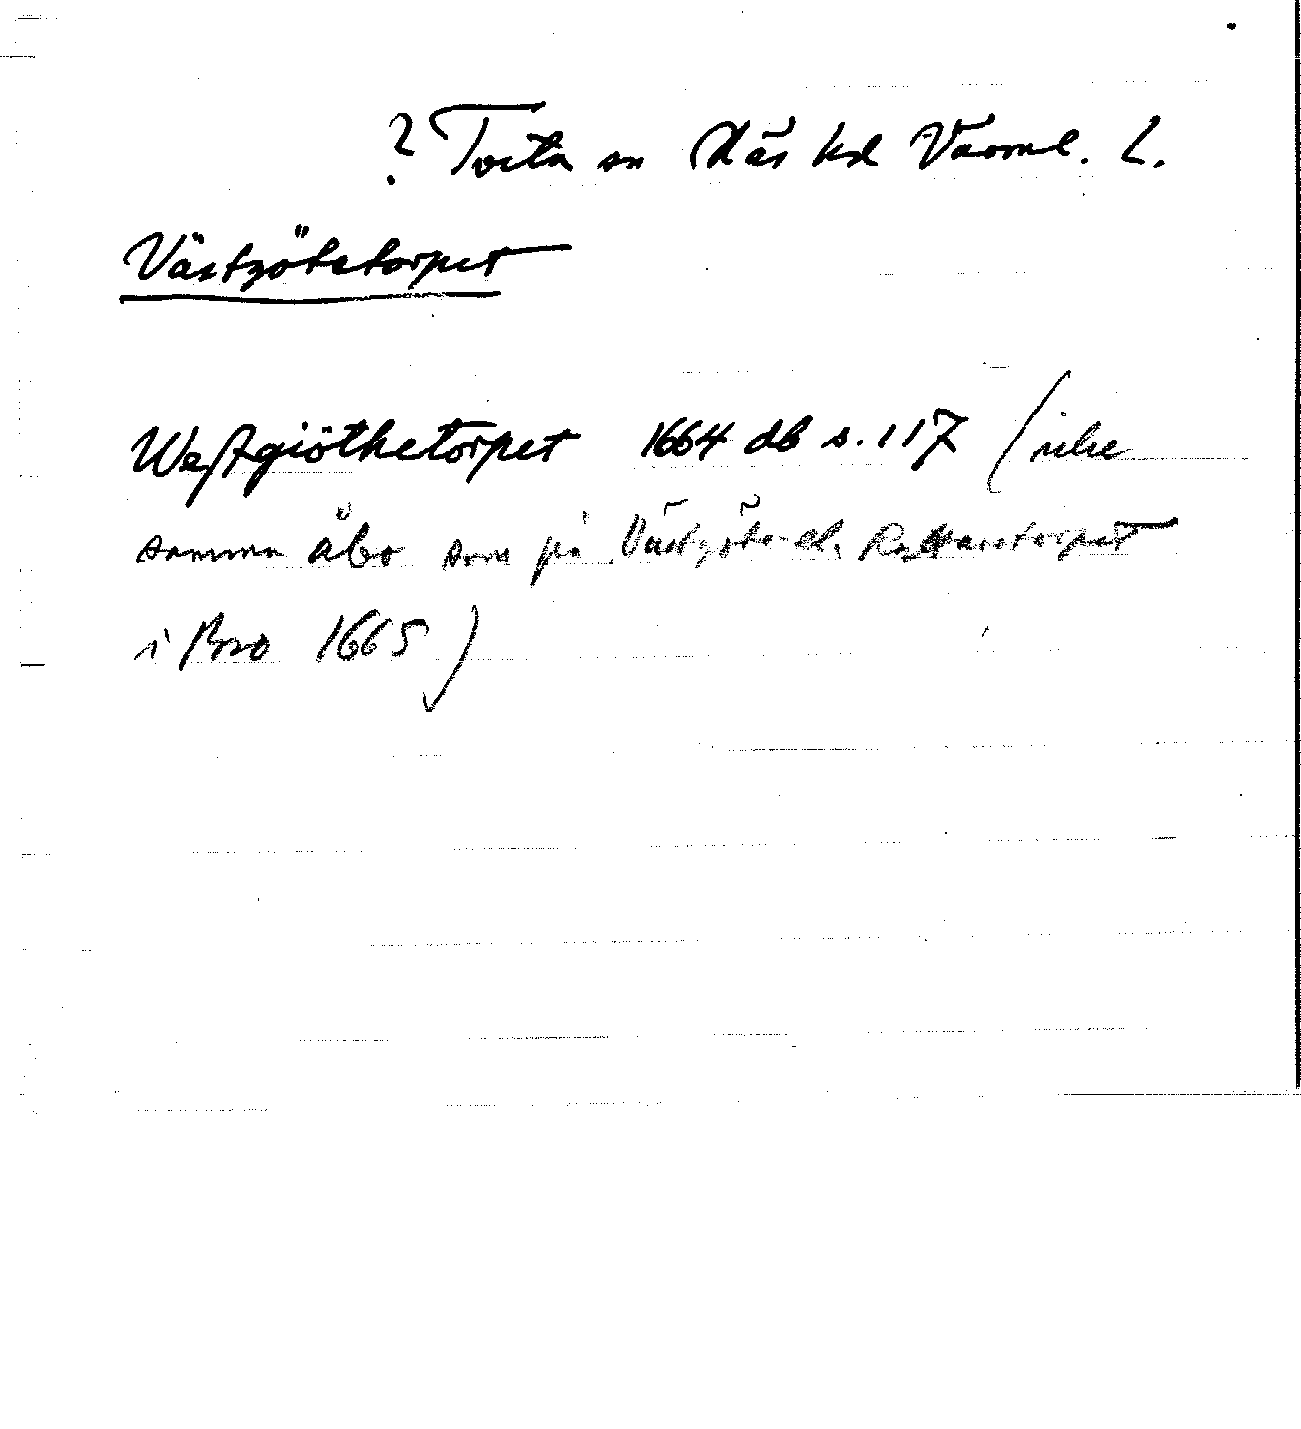 ? Tveta sn Näs hd Värml. L.
Västgötetorpet
Westgiöthetorpet 1664 db s. 117 (icke
samma åbo som på Västgöte- el. Ryttaretorpet
i Bro 1665)